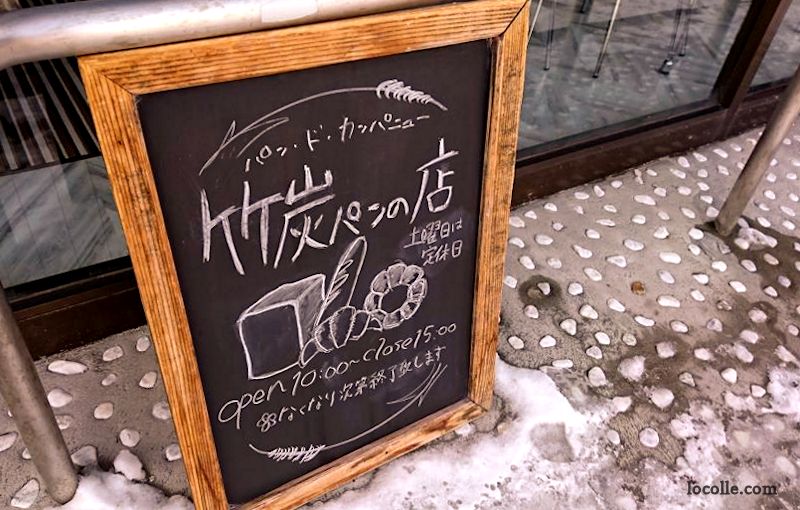 パン・ド・カンパニュー
竹炭パンの店
土曜日は
定休日
open 10:00~close 15:00
※なくなり次第終了致します
focolle.com